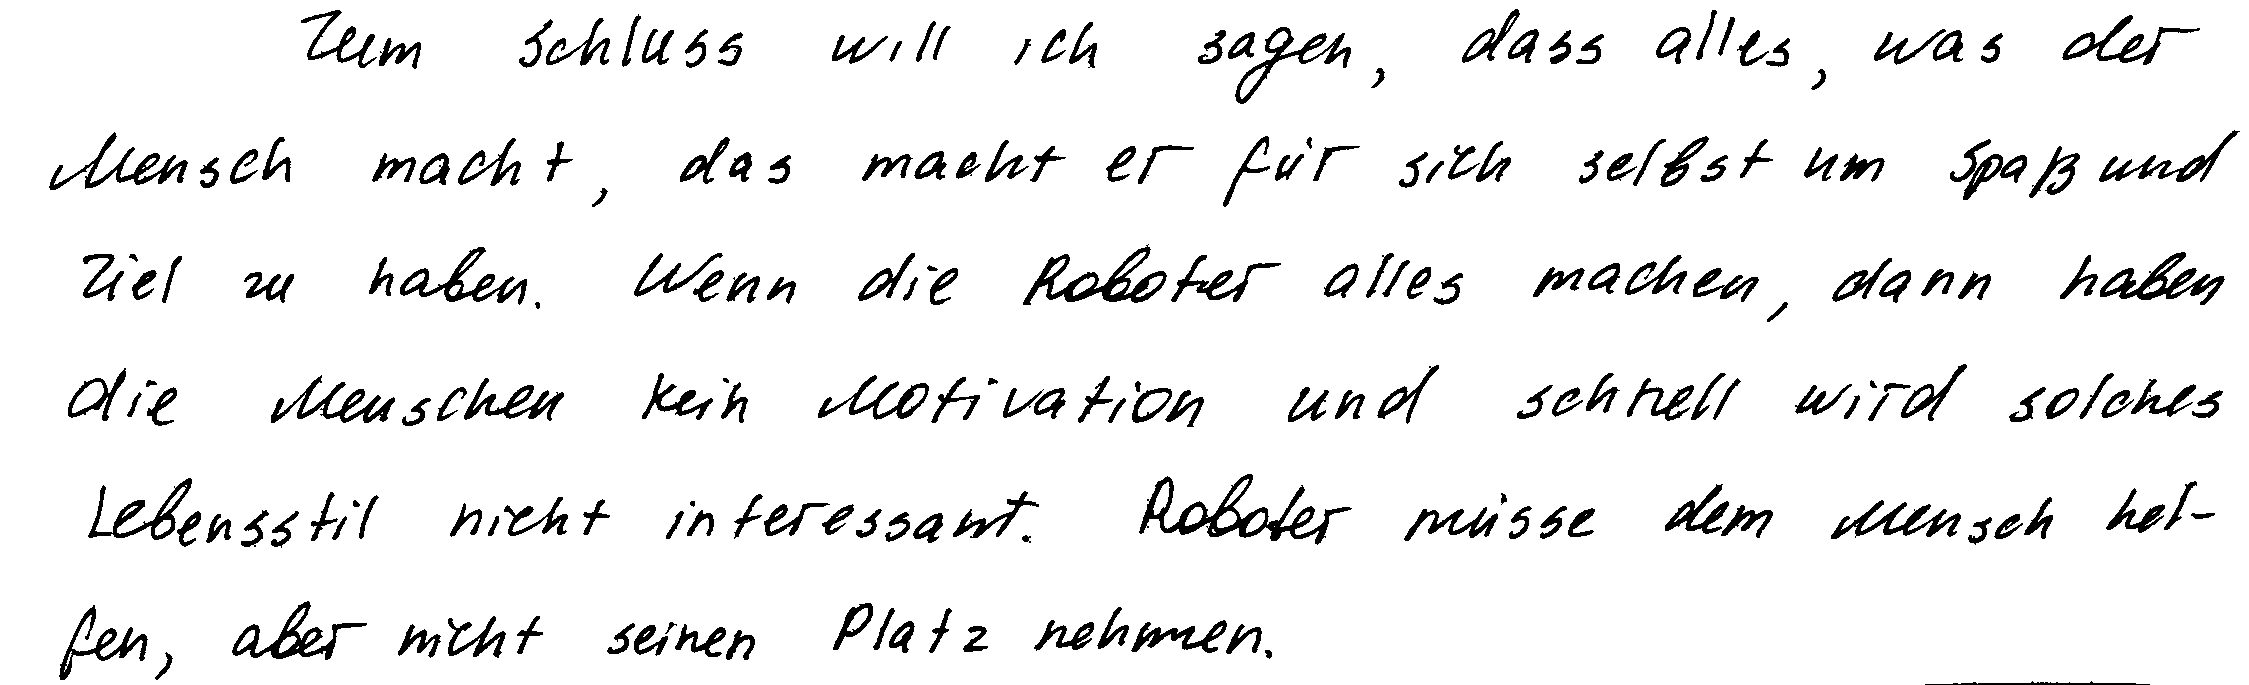 Zum Schluss will ich sagen, dass alles, was der
Mensch macht, das macht er für sich selbst um Spaß und
Ziel zu haben. Wenn die Roboter alles machen, dann haben
die Menschen kein Motivation und schnell wird solches
Lebensstil nicht interessant. Roboter müsse dem Mensch hel-
fen, aber nicht seinen Platz nehmen.